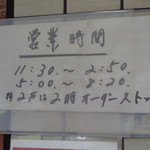 営業時間
11:30.〜2:50.
5:00.〜8:20.
2時オーダーストッ